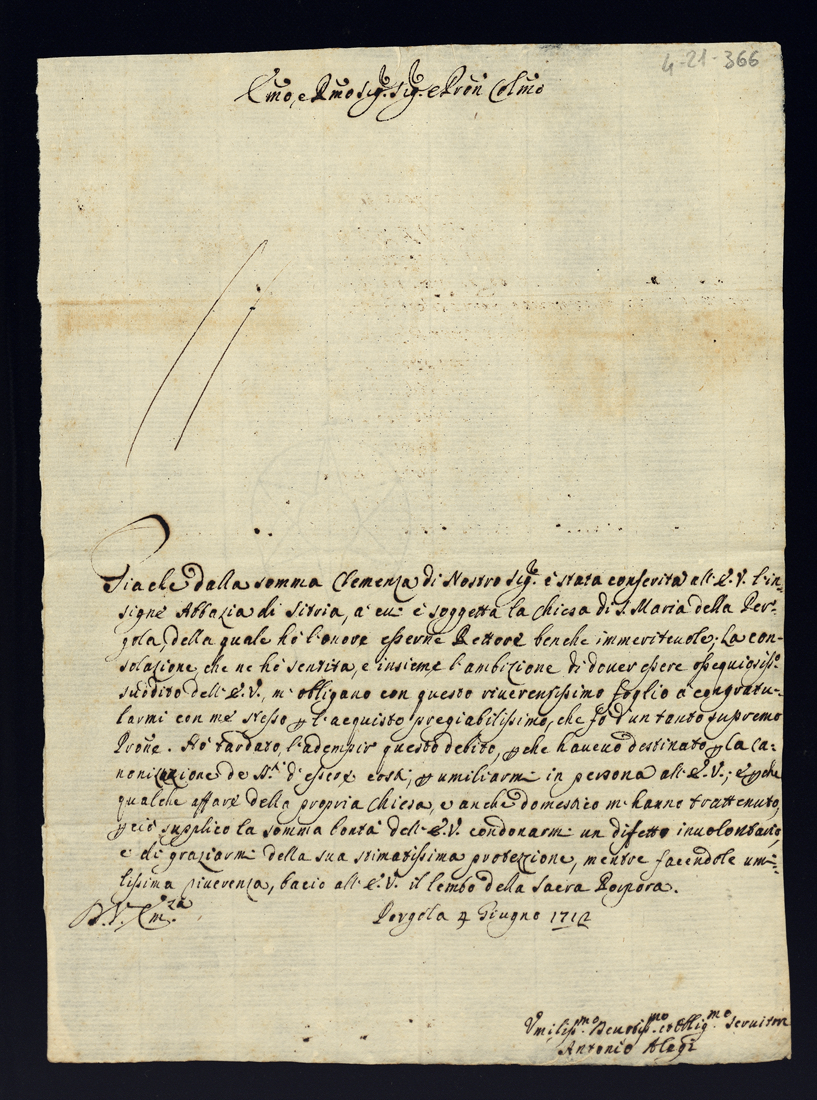 4-21-366
Emo, e Rmo Sig.r Sig.r e Pron Colmo
Giache dalla somma Clemenza di Nostro Sig.re è stata conferita all'E.V. l'in-
signe Abbazia di Sitria, a' cui è soggetta la Chiesa di S. Maria della Per-
gola, della quale hò l'onore esserne Rettore benche immeriteuole; La con-
solazione, che ne hò sentita, e insieme l'ambizione di douer essere ossequiosiss.o
suddito dell'E.V., mi obligano con questo riuerensissimo foglio a congratu-
larmi con me stesso p l'acquisto pregiabilissimo, che fò d'un tanto supremo
Prone. Hò tardato, l'adempir questo debito, pche haueuo destinato p la Ca-
nonizazione de Sti d'essere costi, p umiliarmi in persona all'E.V.; e pche
qualche affare della propria Chiesa, e anche domestico mi hanno trattenuto,
pciò supplico la somma bontà dell'E.V. condonarmi un difetto inuolontario,
e di graziarmi della sua stimatissima protezzione, mentre facendole umi-
lissima riuerenza, bacio all'E.V. il lembo della Sacra Porpora.
D.V. Em.za Pergola 4 Giugno 1712
Vmiliss.mo Deuotiss.mo et Oblig.mo Seruitore
Antonio Alegi